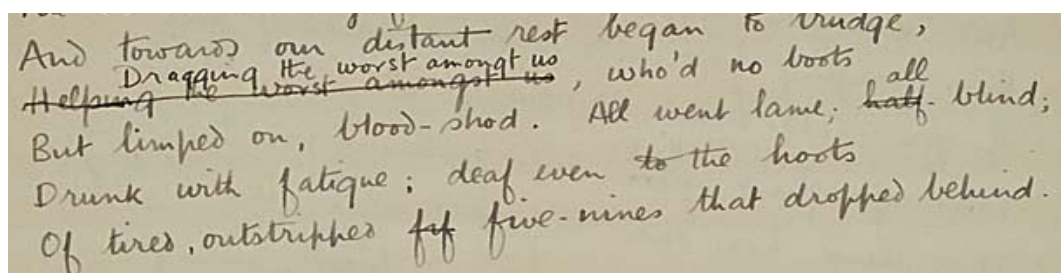 And towards our distant rest began to trudge,
Dragging the worst amongt us
Helping the worst amongst us, who'd no boots
all
But limped on, blood-shod. All went lame; half-blind;
Drunk with fatigue; deaf even to the hoots
Of tired, outstripped fif five-nines that dropped behind.